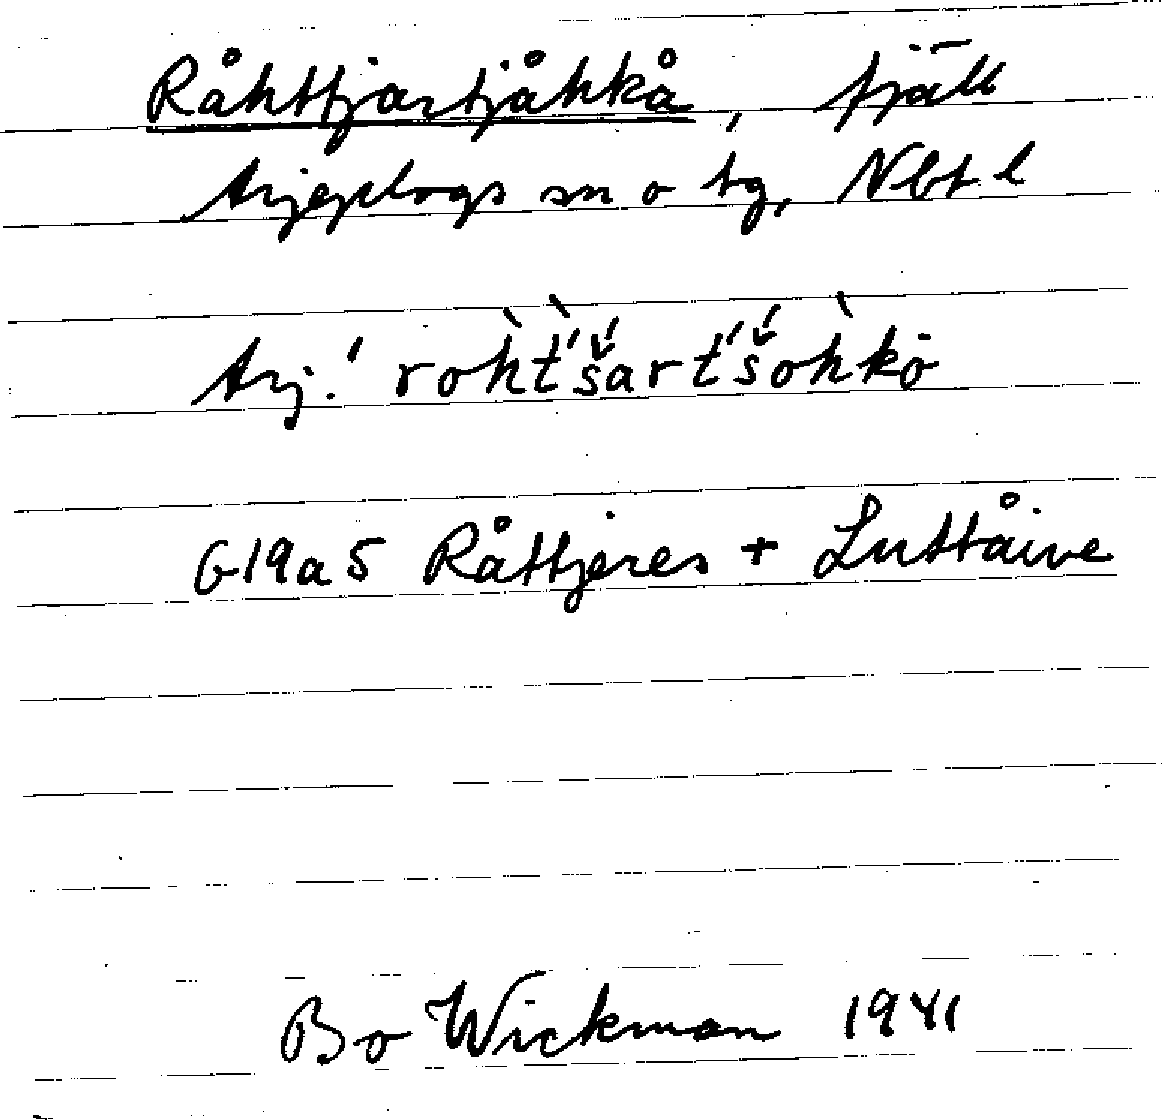 Råhttjartjåhkå, fjäll
Arjeplogs sn o tg, Nbt l
Arj.' roht́'šart́'šohkȯ
G19a5 Råttjeres + Luttåive
Bo Wickman 1941